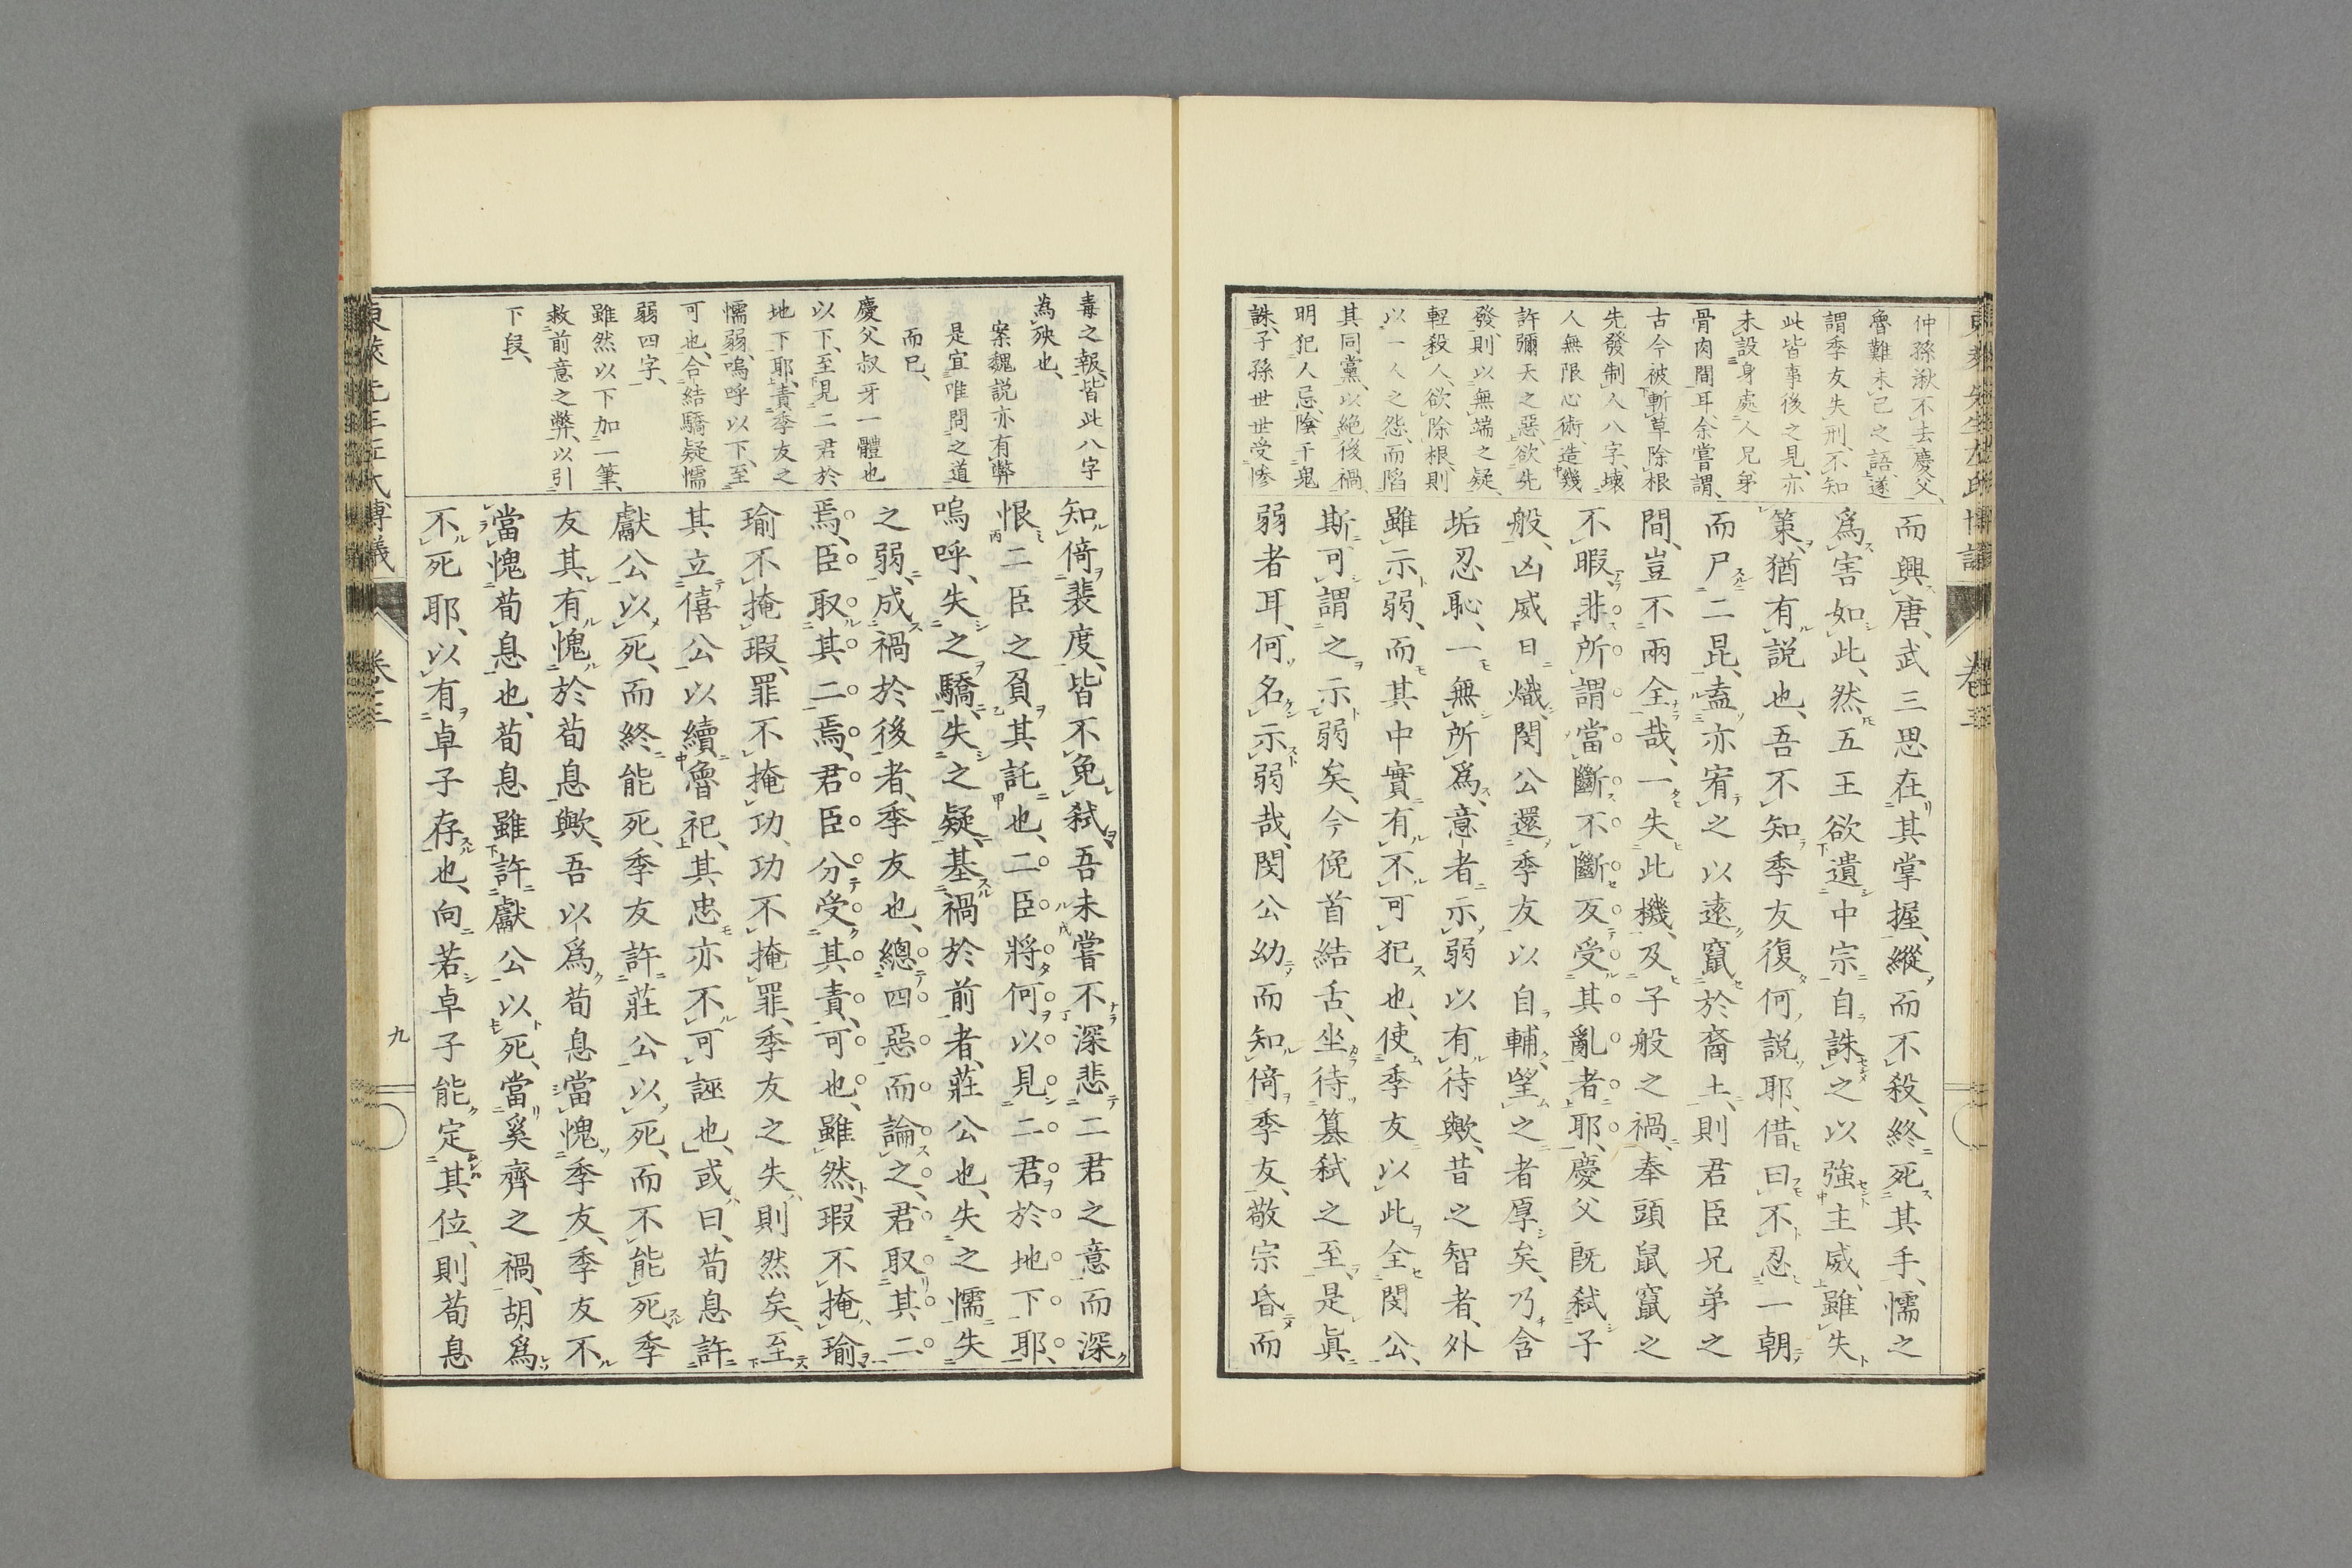 仲孫湫不去慶父、
魯難未已之語、遂
謂季友失刑、不知
此皆事後之見、亦
未設身處人兄弟
骨肉間耳、余嘗謂、
古今被斬草除根
先發制人八字、壞
人無限心術、造幾
許彌天之惡、欲先
發、則以無端之疑、
輕殺人、欲除根、則
以一人之怨、而陷
其同黨、以絕後禍、
明犯人忌、陰干鬼
誅、子孫世世受慘
而興、唐武三思在其掌握、縱而不殺、終死其手、懦之
爲害如此、然五王欲遺中宗自誅之以強主威、雖失
策、猶有説也、吾不知季友復何説耶、借曰不忍一朝
而尸二昆、盍亦宥之以遠竄於裔土、則君臣兄弟之
間、豈不兩全哉、一失此機、及子般之禍、奉頭鼠竄之
不暇、非所謂當斷不斷反受其亂者耶、慶父既弒子
般、凶威日熾、閔公還季友以自輔、望之者厚矣、乃含
垢忍恥、一無所爲、意者示弱以有待歟、昔之智者、外
雖示弱、而其中實有不可犯也、使季友以此全閔公、
斯可謂之示弱矣、今俛首結舌、坐待簒弒之至、是眞
弱者耳、何名示弱哉、閔公幼而知倚季友、敬宗昏而
毒之報、皆此八字
為殃也、
案魏説亦有弊
是宜唯問之道
而已、
慶父叔牙一體也
以下、至見二君於
地下耶、責季友之
懦弱、嗚呼以下、至
可也、合結驕疑懦
弱四字、
雖然以下加一筆、
救前意之弊、以引
下段、
知倚裴度、皆不免弒、吾未嘗不深悲二君之意而深
恨二臣之負其託也、二臣將何以見二君於地下耶、
嗚呼、失之驕、失之疑、基禍於前者、莊公也、失之懦失
之弱、成禍於後者、季友也、總四惡而論之、君取其二
焉、臣取其二焉、君臣分受其責、可也、雖然、瑕不掩瑜
瑜不掩瑕、罪不掩功、功不掩罪、季友之失、則然矣、至
其立僖公以續魯祀、其忠亦不可誣也、或曰、荀息許
獻公以死、而終能死、季友許莊公以死、而不能死季
友其有愧於荀息歟、吾以爲荀息當愧季友、季友不
當愧荀息也、荀息雖許獻公以死、當奚齊之禍、胡爲
不死耶、以有卓子存也、向若卓子能定其位、則荀息
卷三
九